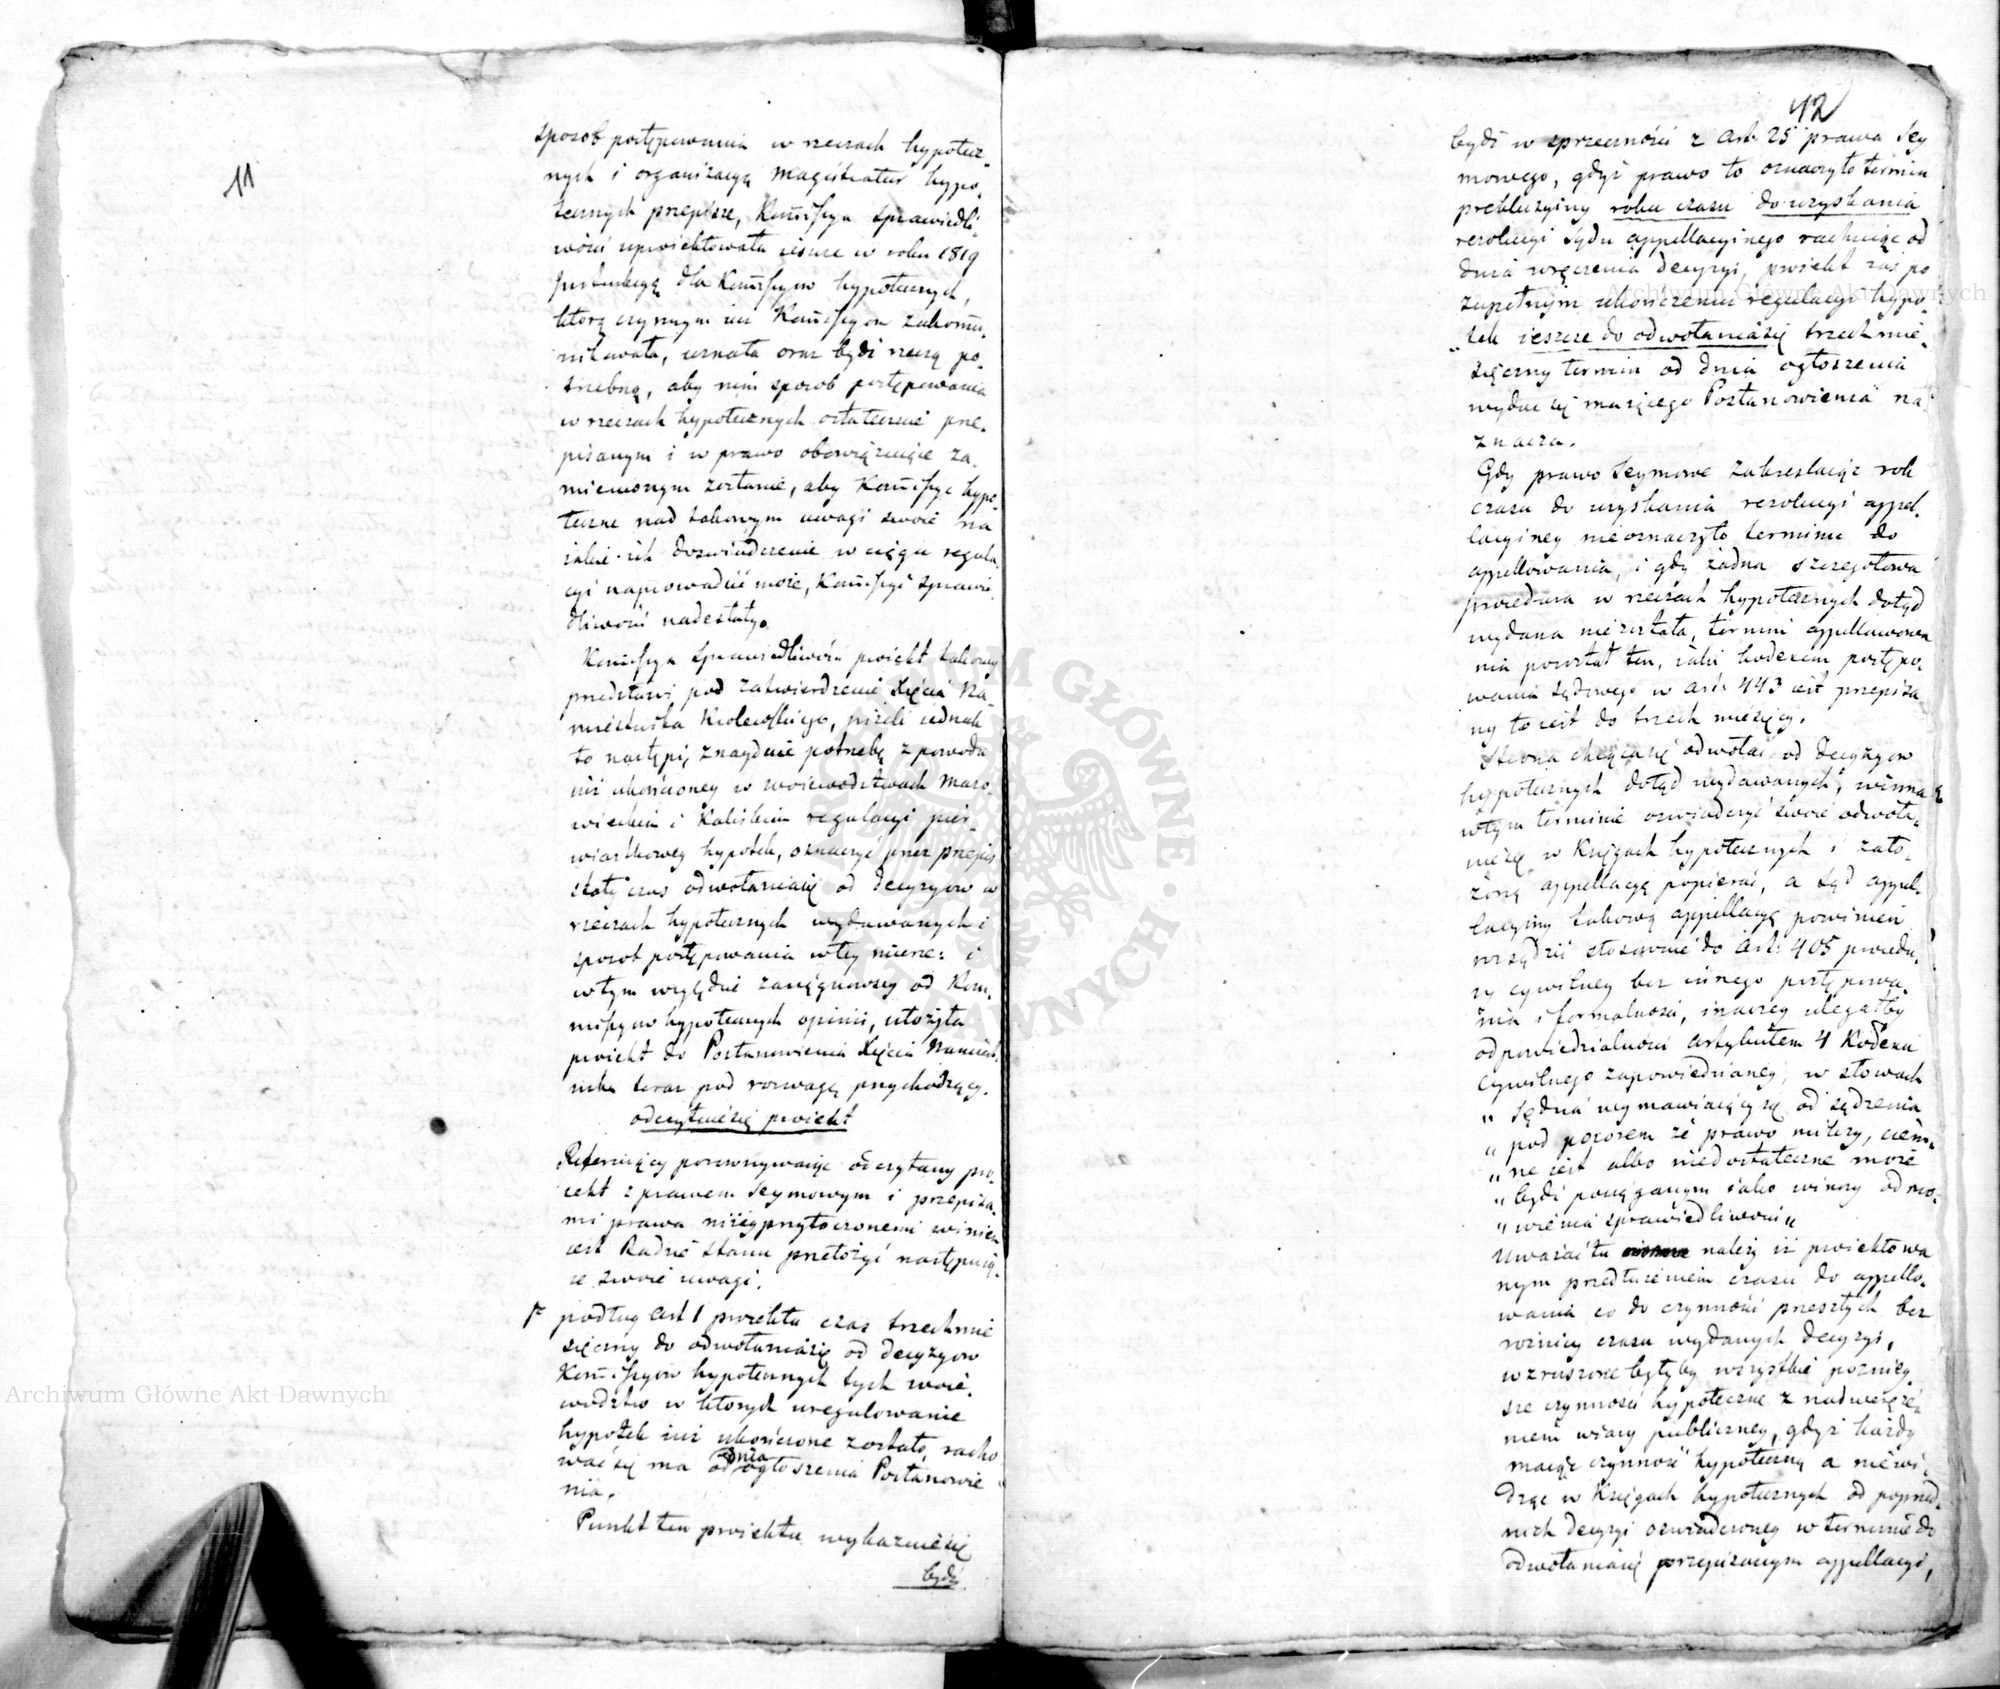 11
sposob postępowania w rzeczach hypotecz„
nych i organizacyą Magistratur hypo„
tecznych przepisze, Kommissya Sprawiedli„
wości uproiektowała ieszcze w roku 1819
Instrukcyą dla Kommissyow hypotecznych,
którą czynnym iuż Kommissyom zakomu„
nikowała, uznała oraz bydź rzeczą po„
trzebną, aby nim sposob postępowania
w rzeczach hypotecznych ostatecznie prze„
pisanym i w prawo obowiązuiące za„
mienionym zostanie, aby Kommissye hypo„
teczne nad takowym uwagi swoie na
iakie ich doswiadczenie w ciągu regula„
cyi naprowadzić może, Kommissyi Sprawie„
dliwości nadesłały.
Kommissya Sprawiedliwości proiekt takowy
przedstawi pod zatwierdzenie Xięcia Na„
miestnika Krolewskiego, niżeli iednak
to nastąpi, znayduie potrzebę z powodu
iuż ukończoney w woiewodztwach Mazo„
wieckim i Kaliskim regulacyi pier„
wiastkowey hypotek, oznaczyć przez przepis
stały czas odwołaniasię od decyzyow w
rzeczach hypotecznych wydawanych i
sposob postępowania wtey mierze: i
wtym względzie zaciągnąwszy od Kom„
missyow hypotecznych opinii, ułożyła
proiekt do Postanowienia Xięcia Namiest„
nika teraz pod rozwagę przychodzący.
odczytuiesię proiekt
Referuiący porownywaiąc odczytany pro„
iekt z prawem Seymowym i przepisa„
mi prawa niżeyprzytoczonemi winien
iest Radzie Stanu przełożyć następuią„
ce swoie uwagi.
1e podług Art 1 proiektu czas trzechmie
sięczny do odwołaniasię od decyzyow
Kommissyow hypotecznych tych woie„
wodztw w ktorych uregulowanie
hypotek iuż ukończone zostało, racho
waćsię ma od dnia ogłoszenia Postanowie
nia.
Punkt ten proiektu wykazuiesię
bydź
42
bydź w sprzeczności z Art. 25 prawa Sey
mowego, gdyż prawo to oznaczyło termin
prekluzyiny roku czasu do uzyskania
rezolucyi Sądu appellacyinego rachuiąc od
dnia wręczenia decyzyi, proiekt zas po
zupełnym ukończeniu regulacyi hypo„
„tek ieszcze do odwołaniasię trzechmie„
sięczny termin od dnia ogłoszenia
wydać się maiącego Postanowienia na„
znacza.
Gdy prawo Seymowe zakreslaiąc rok
czasu do uzyskania rezolucyi appel„
lacyiney nieoznaczyło terminu do
appellowania, i gdy żadna szczegołowa
procedura w rzeczach hypotecznych dotąd
wydana niezostała, termin appellowowa
nia pozostał ten, iaki kodexem postępo„
wania sądowego w art. 443 iest przepisa„
ny to iest do trzech miesięcy.
Strona chcącasię odwołać od decyzyow
hypotecznych dotąd wydawanych, winna
wtym terminie oswiadczyć swoie odwoła„
niesię w Księgach hypotecznych i zało„
żoną appellacyą popierać, a Sąd appel„
lacyiny takową appellacyą powinien
rozsądzić stosownie do Art: 405 procedu„
ry cywilney bez innego postępowa„
nia i formalności, inaczey ulegałby
odpowiedzialności artykułem 4 Kodexu
Cywilnego zapowiedzianey, w słowach
„ Sędzia wymawiaiący się od sądzenia
„ pod pozorem że prawo milczy, ciem„
„ ne iest albo niedostateczne może
„ bydź pociąganym iako winny odmo„
„ wienia sprawiedliwości„
Uważać tu należy iż proiektowa
nym przedłużeniem czasu do appello„
wania co do czynności przeszłych bez
rożnicy czasu wydanych decyzyi,
wzruszone byłyby wszystkie poźniey„
sze czynności hypoteczne z nadweręże„
niem wiary publiczney, gdyż każdy
maiąc czynność hypoteczną a niewi„
dząc w Księgach hypotecznych od poprzed„
nich decyzyi oswiadczoney w terminie do
odwołaniasię przepisanym appellacyi,